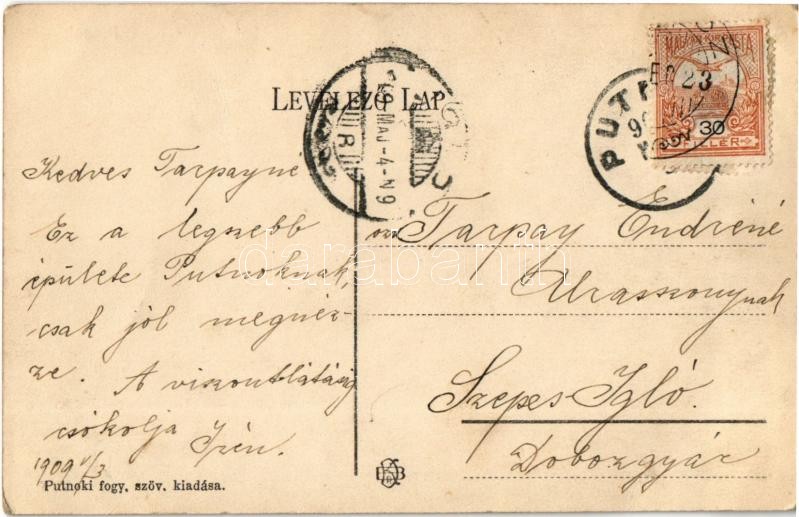 LEVELEZŐ LAP
MAGYAR KIR. POSTA
30
FILLÉR
909 MAJ -4-N9
23
Kedves Tarpayné
Ez a legszebb
épülete Putnoknak,
csak jól megnéz-
ze. A viszontlátásig
csókolja Irén.
1909 V/3
Tarpay Endréné
Uraasszonynak
Szepes-Igló.
Dobozgyár
Putnoki fogy. szöv. kiadása.
darabanth